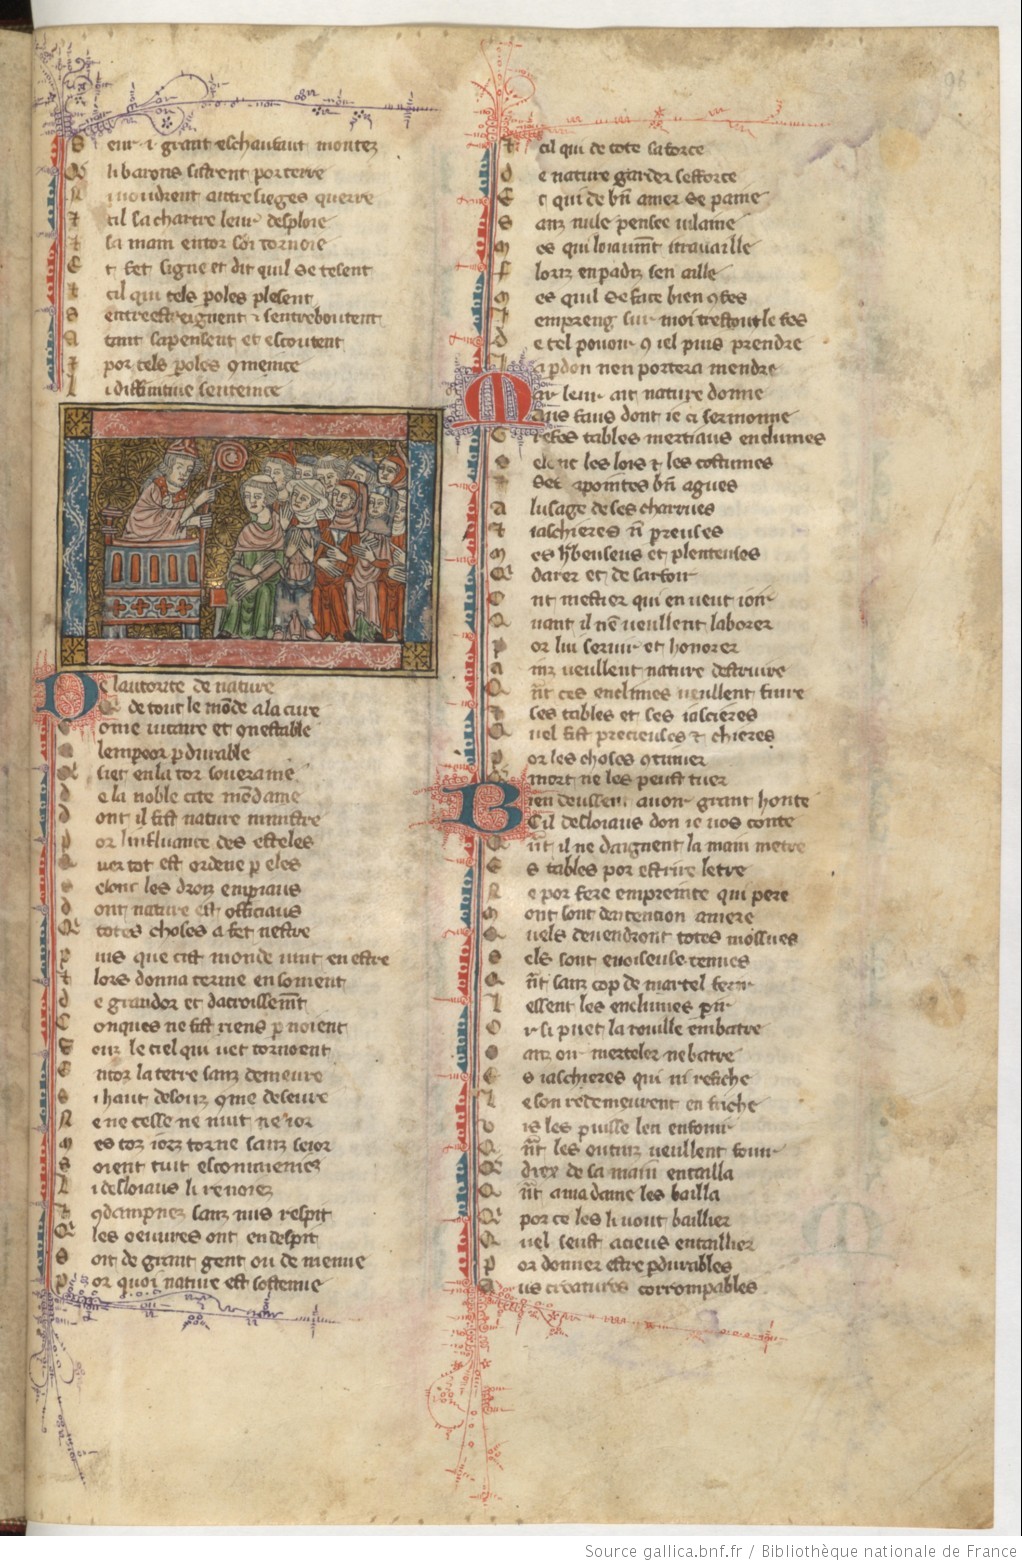 S eur i grant eschaufaut montez
li barons sistrent por terre
N i voudrent autre sieges querre
t cil sa chartre leur desploie
t sa main entor soi tornoie
E t fet signe et dit quil se tesent
t cil qui tels poles plesent
s entrestreignent i sentreboutent
a tant sapensent et escoutent
t por tels poles qmence
l i diffinitive sentence
De lautorite de nature
de tout le mode a la cure
ome vicaire et gnestable
lempoor pdurable
siet en la tor souerame
d e la noble cite modame
d ont il fist nature ministre
p or linfluance des esteles
q uer tot est ordene p eles
selonc les droiz enpiaus
d ont nature est officiaus
Q totes choses a fet nestre
p uis que cist monde vint en estre
t lors donna terme ensoment
d e grandor et dacroissemt
C onques ne fist riens p noient
S ouz le ciel qui uet tornoent
E ntor la terre sanz demeure
s i haut desouz qme deseure
N e ne cesse ne nuit ne ior
m es toz iorz torne sanz seior
s oient tuit esconmeniez
L i desloiaus li renoiez
t qdampnez sanz nus respit
Q les oeuvres ont en despit
s oit de grant gent ou de menue
p or quoi nature est sostenue
t cil qui de tote sa force
d e nature garder sefforce
E t qui de bn amer se paine
s anz nule pensee vilaine
m es qui loiaumt itravaille
f loriz en padiz sen aille
m es quil se face bien qfes
I empreng sur moi trestout le fes
d e tel pouoir q iel puis prendre
I a pdon nen portera mendre
Mar leur ait nature donne
aus faus dont ie ci sermonne
G refes tables mertiaus enclumes
s elonc les lois & les costumes
Set apointes bn agues
a lusage de ses charrues
t iaschieres n perreuses
m es hbeuseus et plenteuses
Q darer et de sarfoir
O nt mestier qui en veut ioir
Q uant il ne veullent laborer
p or lui servir et honorer
a inz veullent nature destruire
Q nt ces enclimes veullent fuire
t ses tables et ses iascieres
Q uel fist precieuses & chieres
p or les choses qtinuer
Q mort ne les peust tuer
Bien deussent avoir grant honte
Cil desloiaus don ie vos conte
Q nt il ne daignent la main metre
E s tables por escrire letre
N e por fere empreinte qui pere
m ont sont dentencion amere
Q uels devendront totes mossues
s els sont en oiseuse tenues
Q nt sanz cop de martel ferir
l essent les enclumes prir
O r si puet la rouille enbatre
s anz oir marteler ne batre
L es iaschieres qui ni refiche
L e son redemeurent en friche
v is les puisse len enfouir
Q nt les outiuz veullent fouir
Q diex de sa main entailla
Q nt a ma dame les bailla
Q por ce les li vout baillier
Q uel seust acieus entaillier
p or donner estre pdurables
A us creatures corrompables
Source gallica.bnf.fr / Bibliothèque nationale de France